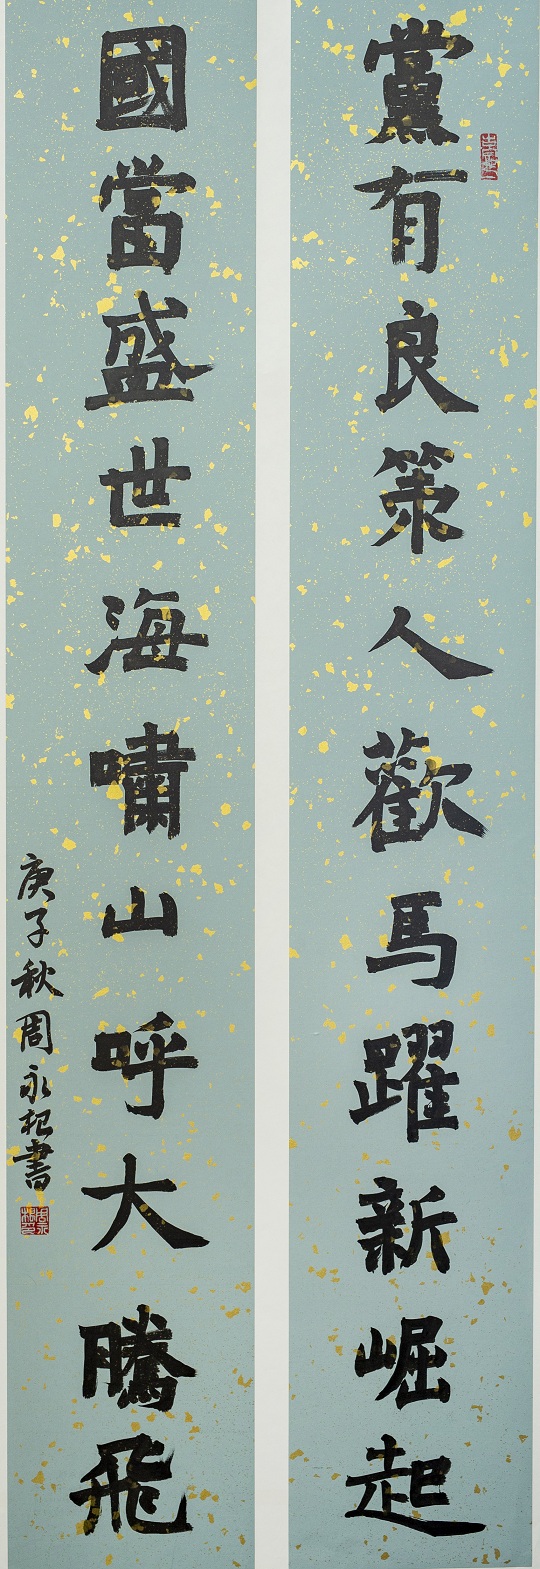 黨有良策人歡馬躍新崛起
國當盛世海嘯山呼大騰飛
庚子秋周永杞書